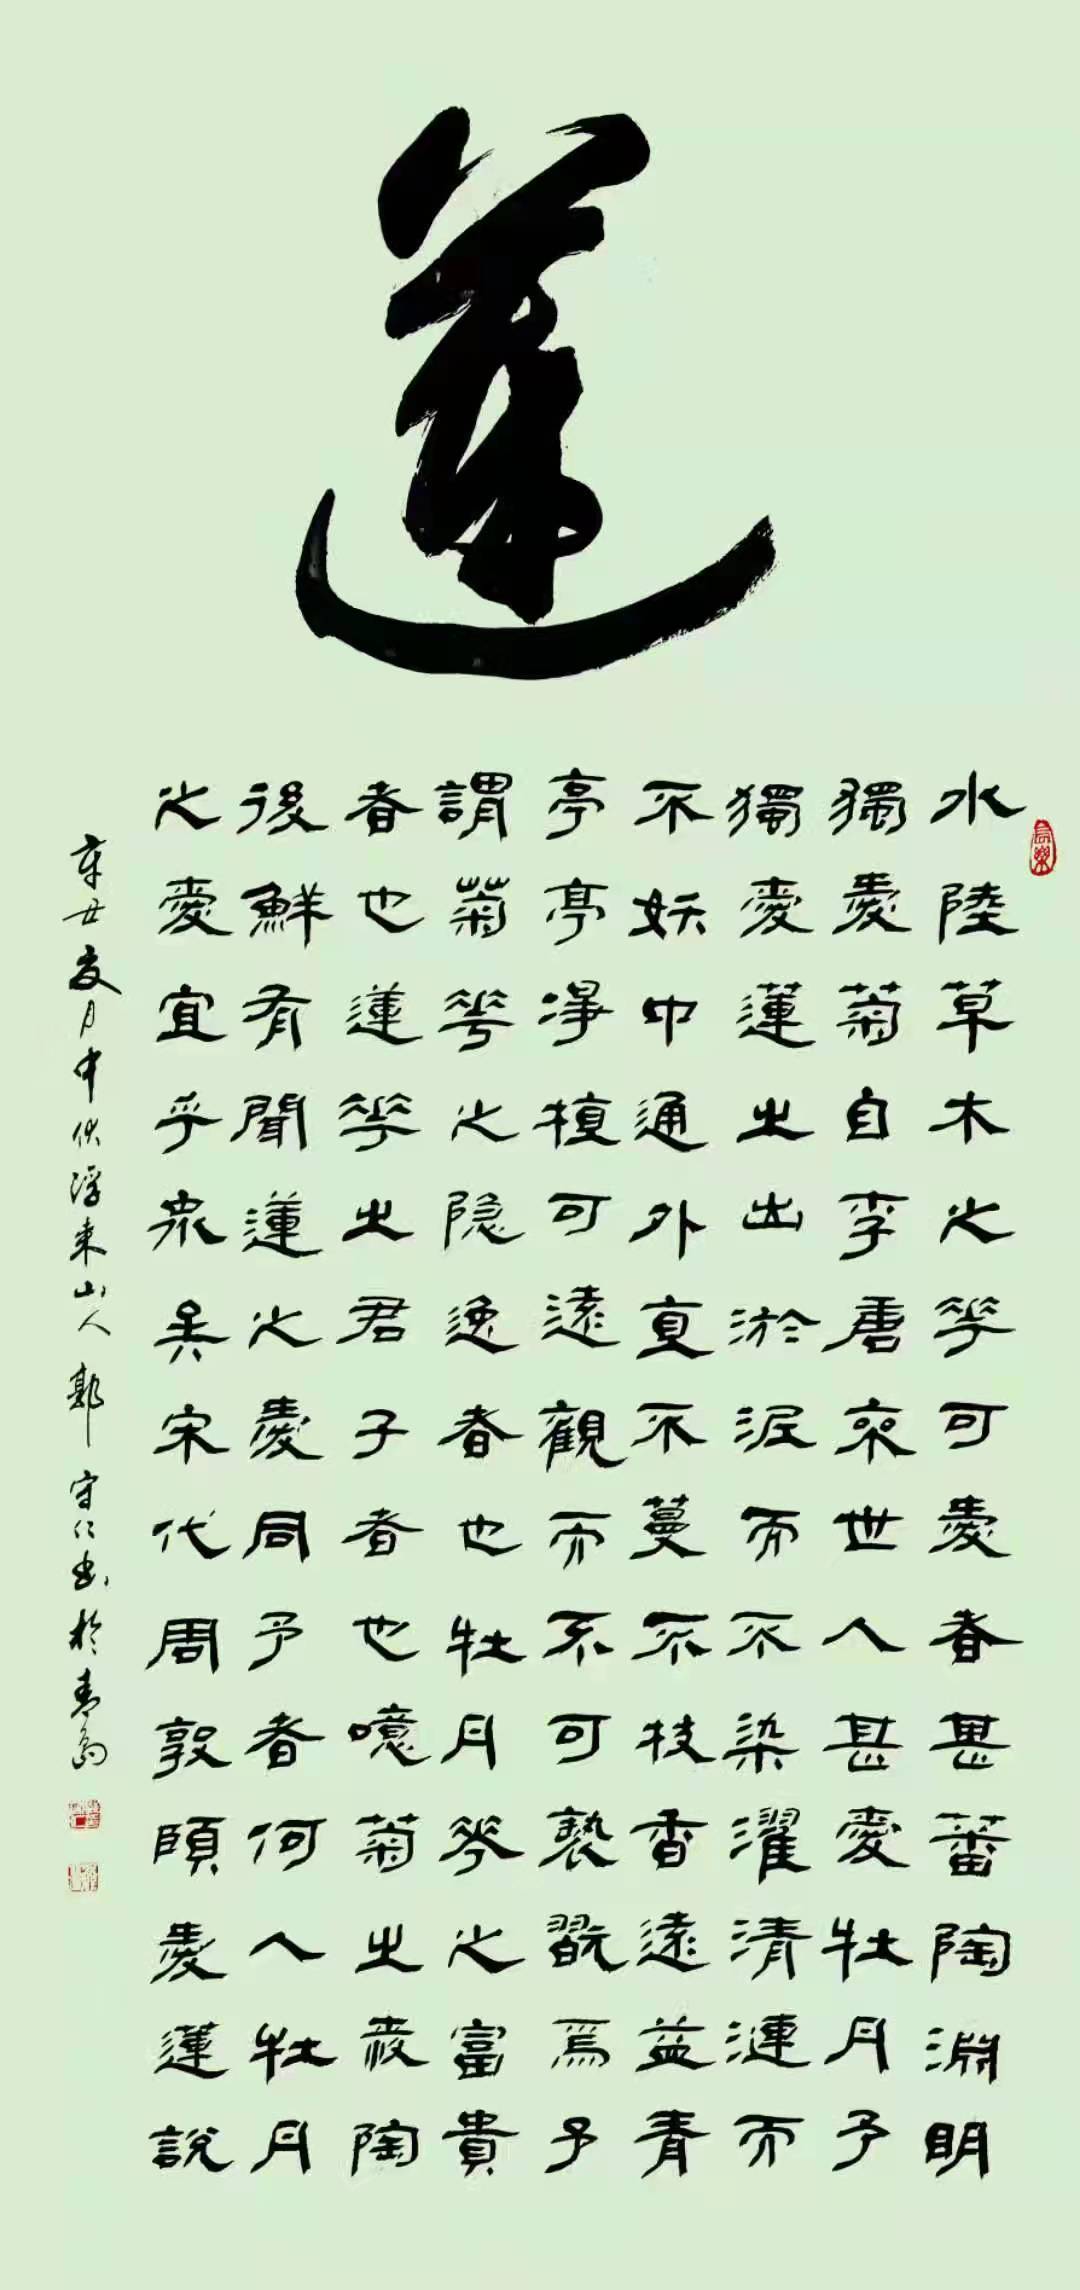 蓮
水陸草木之花可愛者甚蕃陶淵明
獨愛菊自李唐來世人甚愛牡丹予
獨愛蓮之出淤泥而不染濯清漣而
不妖中通外直不蔓不枝香遠益青
亭亭淨植可遠觀而不可褻翫焉予
謂菊花之隐逸者也牡丹花之富貴
者也蓮花之君子者也噫菊之愛陶
後鮮有聞蓮之愛同予者何人牡丹
之愛宜乎衆矣宋代周敦頤愛蓮說
辛丑夏月中伏浮来山人郭守仁書於青島